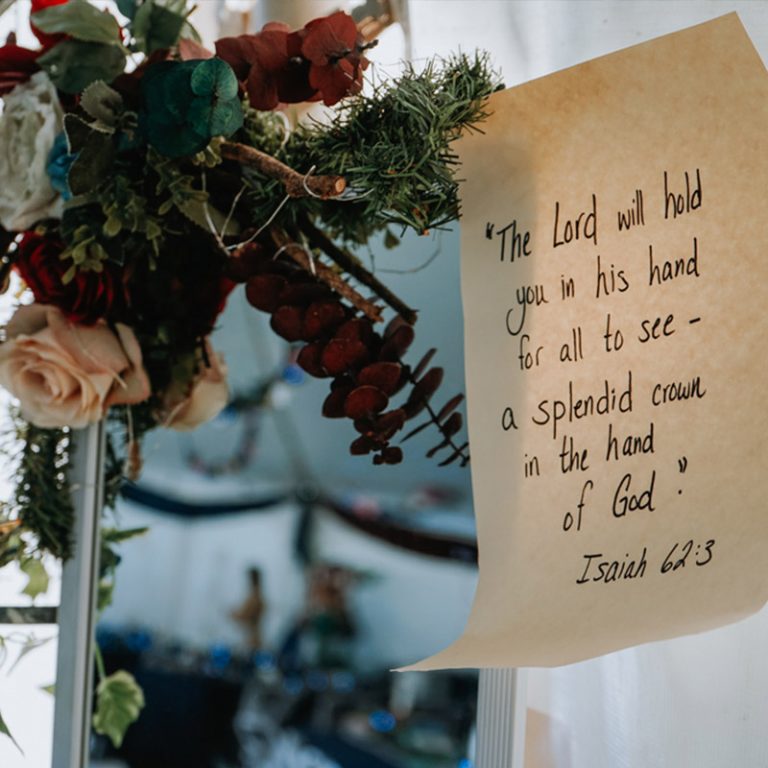 "The Lord will hold
you in his hand
for all to see -
a splendid crown
in the hand
of God."
Isaiah 62:3